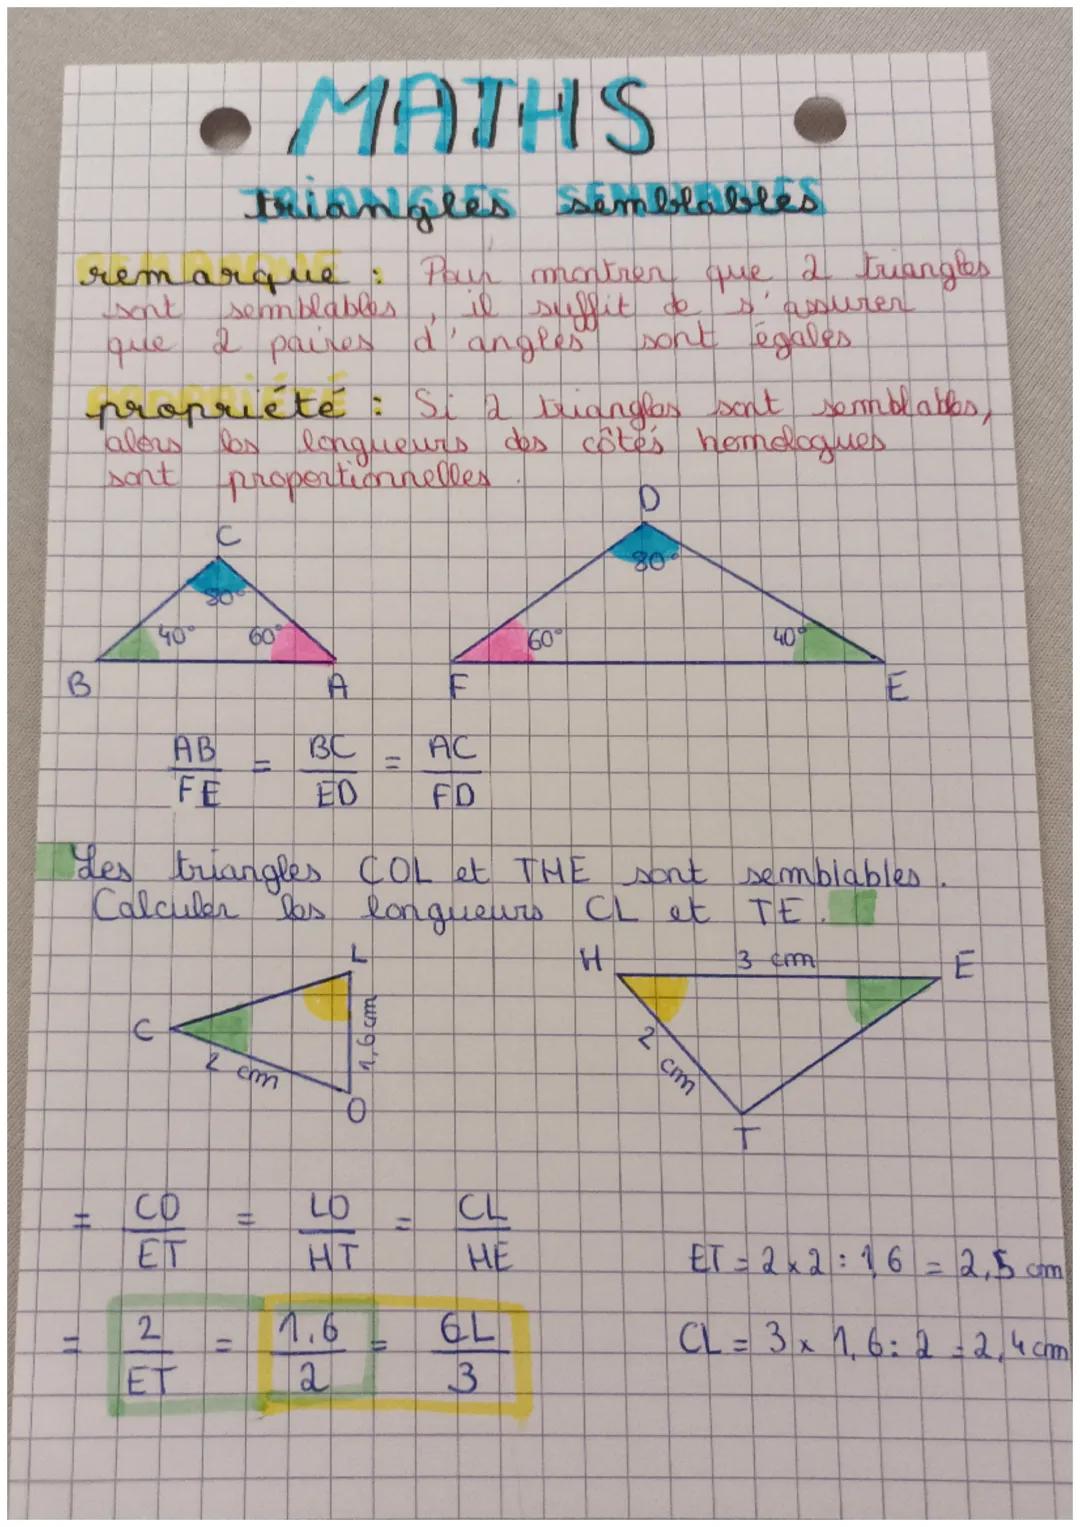 MATHS
triangles semblables
remarque : Pour montrer que 2 triangles
sont semblables, il suffit de s'assurer
que 2 paires d'angles sont égales
propriété : Si 2 triangles sont semblables,
alors les longueurs des côtés homologues
sont proportionnelles.
C D
80° 80°
40° 60° 60° 40°
B A F E
AB/FE = BC/ED = AC/FD
Les triangles COL et THE sont semblables.
Calculer les longueurs CL et TE.
L H 3 cm E
C 1,6 cm
2 cm 2 cm
O T
= CO/ET = LO/HT = CL/HE
ET = 2 x 2 : 1,6 = 2,5 cm
= 2/ET = 1.6/2 = CL/3
CL = 3 x 1,6 : 2 = 2,4 cm